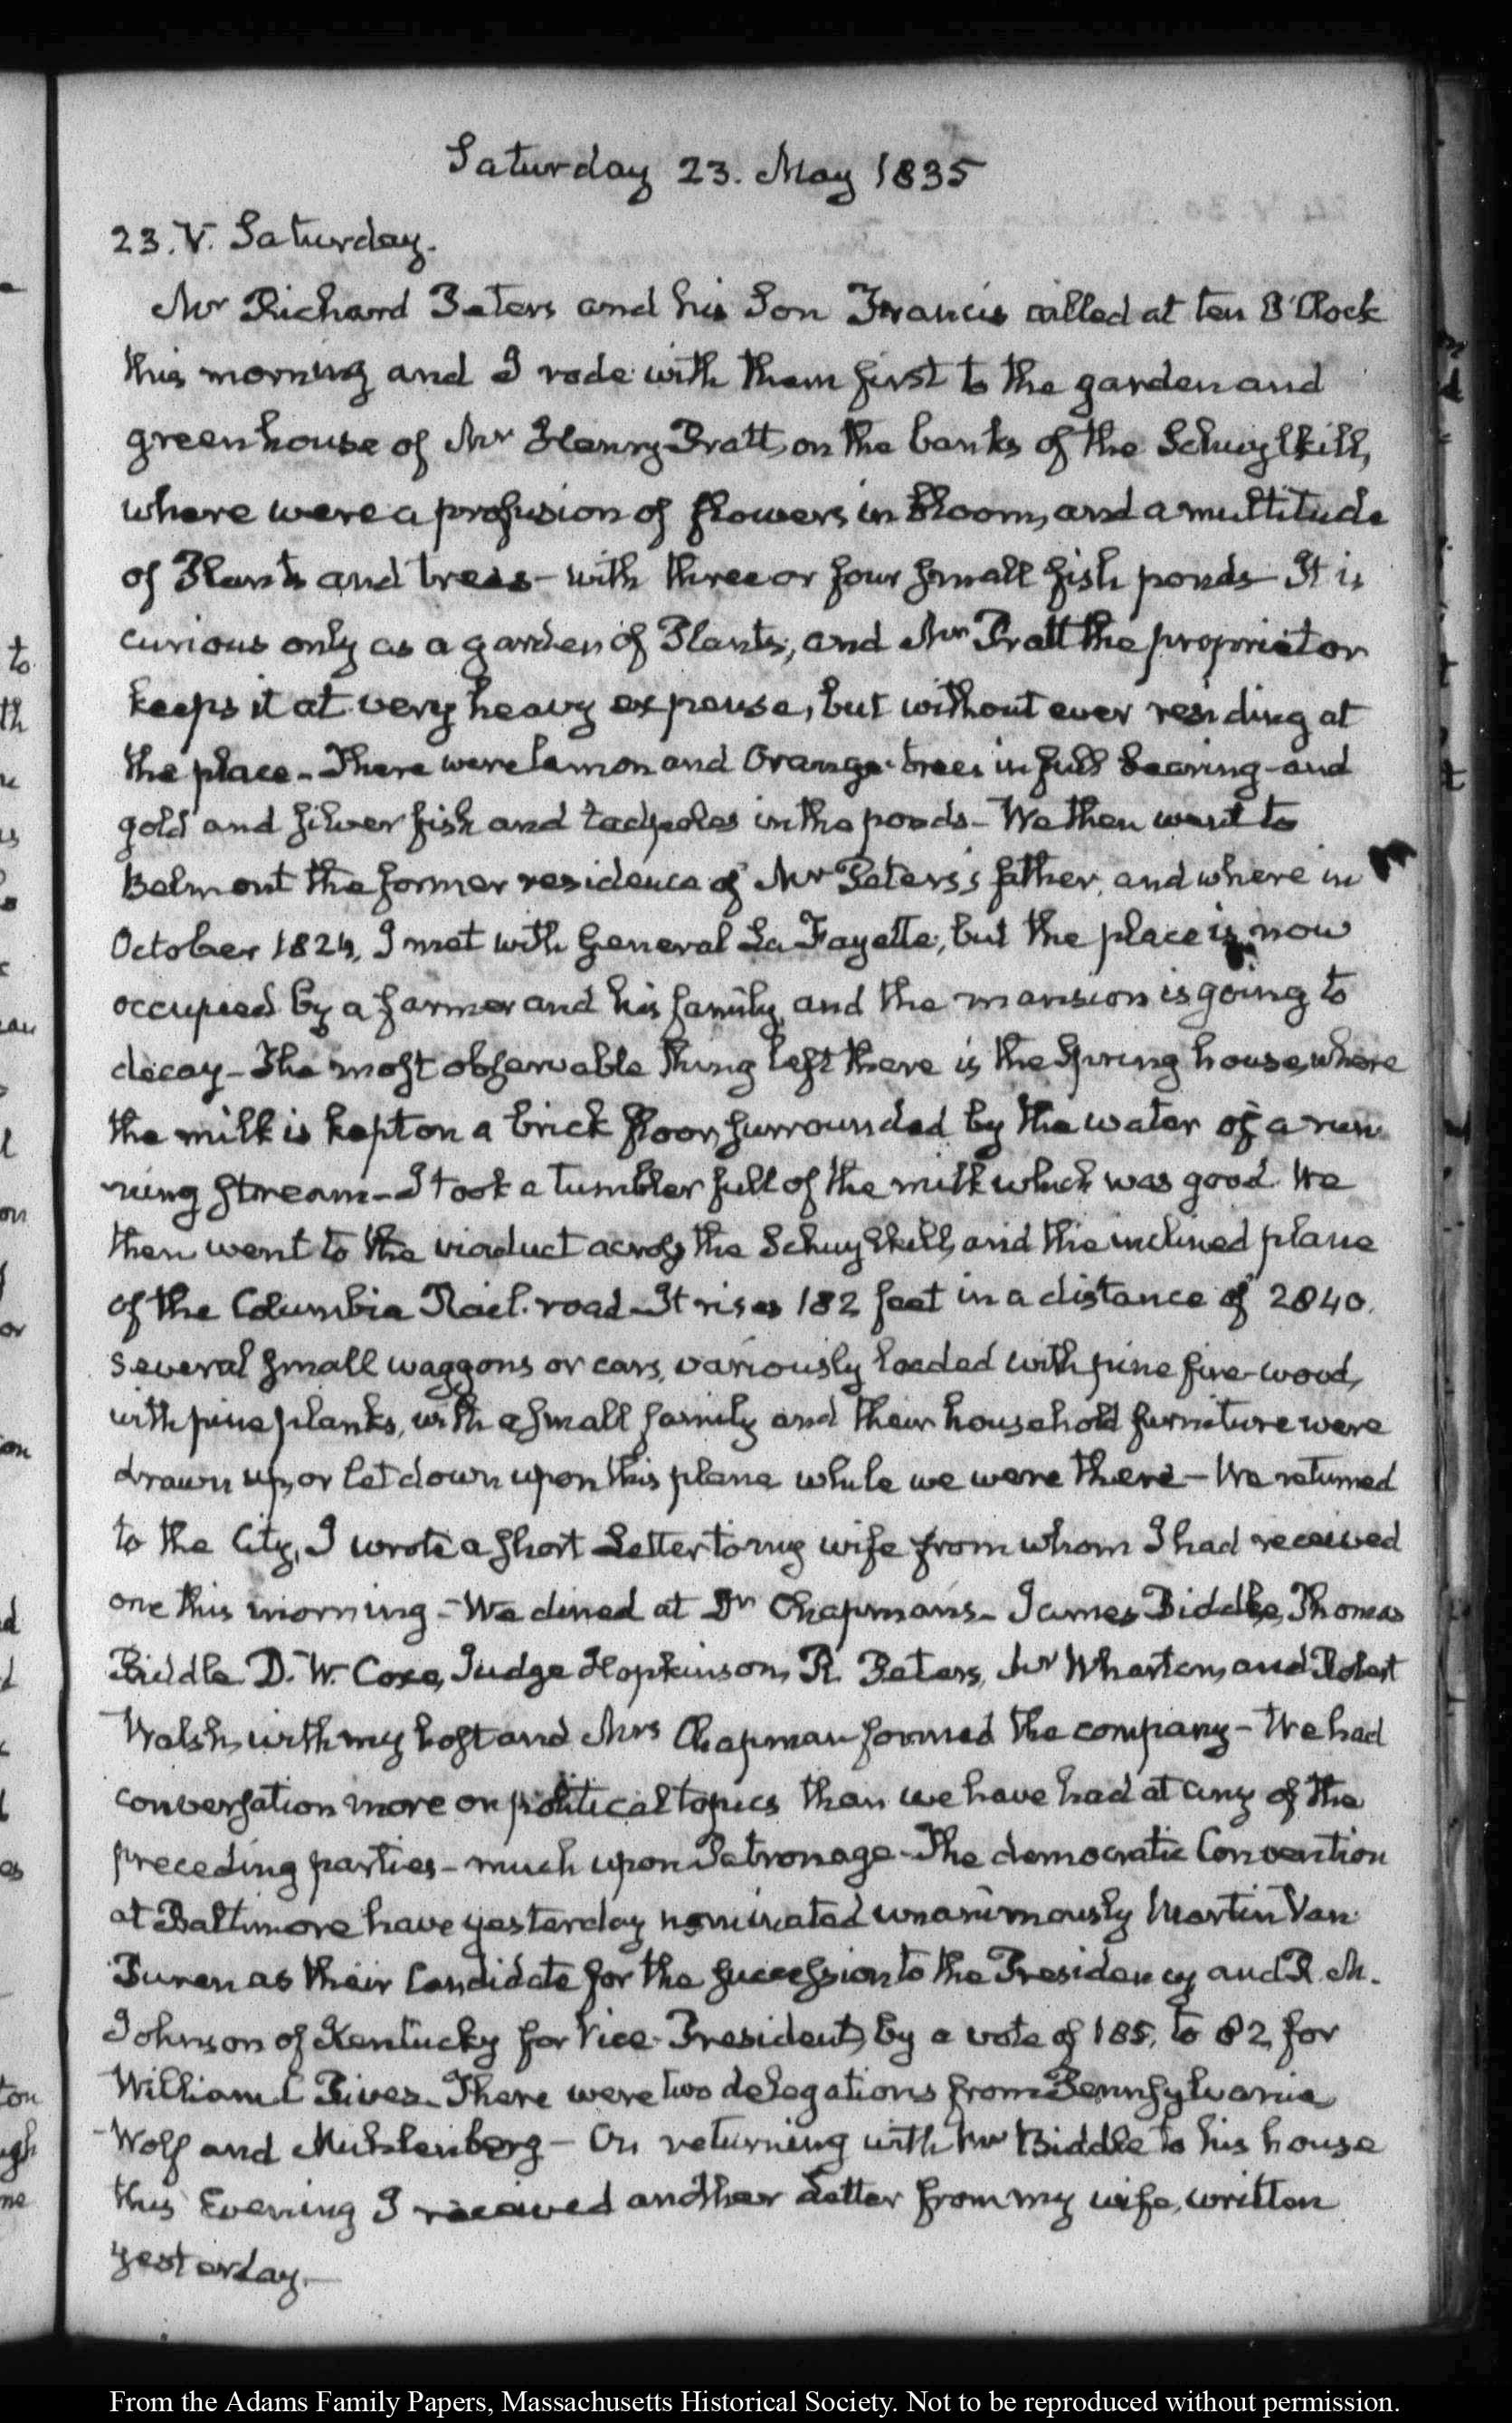 Saturday 23. May 1835
23. V. Saturday.
Mr Richard Peters and his Son Francis called at ten O'Clock
this morning and I rode with them first to the garden and
greenhouse of Mr Henry Pratt, on the banks of the Schuylkill,
where were a profusion of flowers in bloom, and a multitude
of Plants and trees - with three or four small fish ponds - It is
curious only as a garden of Plants, and Mr Pratt the proprietor
keeps it at very heavy expense, but without ever residing at
the place - There were lemon and Orange-trees in full bearing - and
gold and silver fish and tadpoles in the ponds - We then went to
Belmont the former residence of Mr Peters's father, and where in
October 1824, I met with General La Fayette, but the place is now
occupied by a farmer and his family, and the mansion is going to
decay - The most observable thing left there is the Spring house, where
the milk is kept on a brick floor, surrounded by the water of a run
ning stream - I took a tumbler full of the milk which was good. We
then went to the viaduct across the Schuylkill, and the inclined plane
of the Columbia Rail-road - It rises 182 feet in a distance of 2840.
Several small waggons or cars, variously loaded with pine fire-wood,
with pine planks, with a small family and their household furniture were
drawn up, or let down upon this plane while we were there - We returned
to the City, I wrote a short Letter to my wife from whom I had received
one this morning - We dined at Dr Chapman's - James Biddle, Thomas
Biddle D. W. Coxe, Judge Hopkinson, R. Peters, Mr Wharton, and Robert
Walsh, with my host and Mrs Chapman formed the company - We had
conversation more on political topics than we have had at any of the
preceding parties - much upon Patronage - The democratic Convention
at Baltimore have yesterday nominated unanimously Martin Van
Buren as their Candidate for the succession to the Presidency and R. M.
Johnson of Kentucky for Vice-President, by a vote of 185, to 82 for
William C Rives - There were two delegations from Pennsylvania
Wolf and Muhlenberg - On returning with Mr Biddle to his house
this Evening I received another Letter from my wife, written
yesterday.—
From the Adams Family Papers, Massachusetts Historical Society. Not to be reproduced without permission.